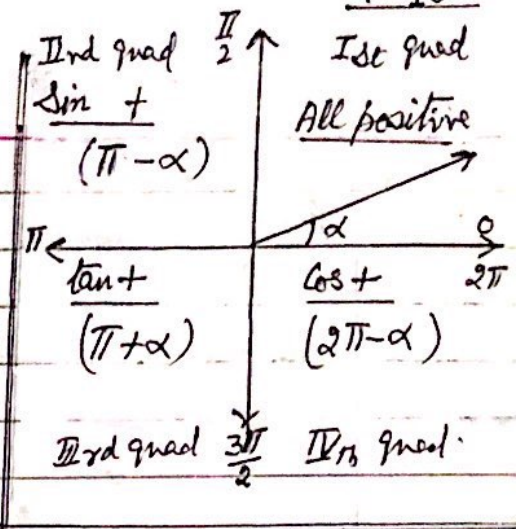 IIrd quad π/2 Ist quad
Sin + All positive
(π-α)
α
π 0
tan+ Cos+ 2π
(π+α) (2π-α)
IIIrd quad 3π/2 IVth quad.